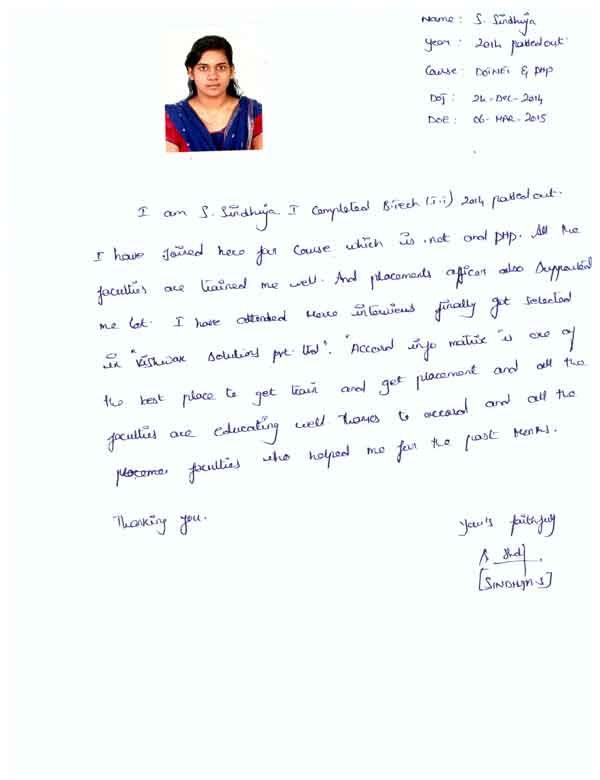 Name : S. Sindhuja
Year : 2014 passed out
Course : DOTNET & PHP
DOJ : 24-DEC-2014
DOE : 06-MAR-2015
I am S. Sindhuja I completed B.Tech (i.i) 2014 passed out.
I have Joined here for Course which is .not and PHP. All the
faculties are trained me well. And placements officer also Supported
me lot. I have attended More interviews finally get selected
in "Vishwak Solutions pvt. Ltd". "Accord info matrix" is one of
the best place to get train and get placement and all the
faculties are educating well Thanks to accord and all the
faculties who helped me for the past
Thanking you.
Your's faithfuly
[SINDHUJA.S]